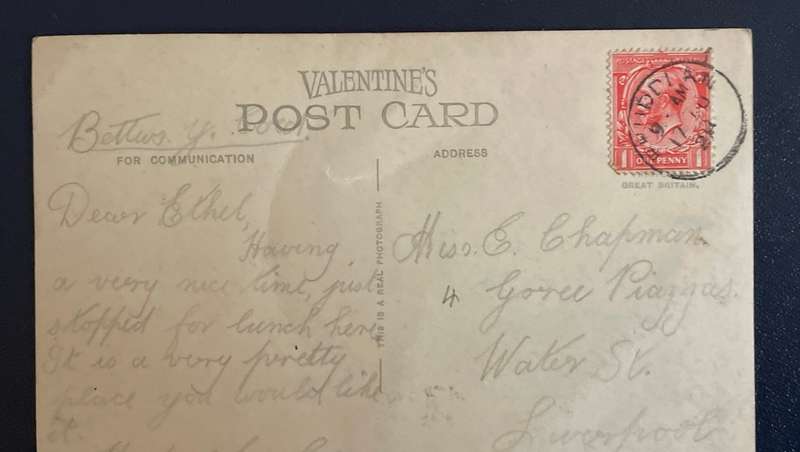 VALENTINE'S
POST CARD
Bettws. y.
FOR COMMUNICATION
ADDRESS
GREAT BRITAIN.
POSTAGE
1 ONE PENNY 1
9 - AM
17
Dear Ethel,
Having
a very nice time, just
stopped for lunch here
It is a very pretty
place you would like
it.
THIS IS A REAL PHOTOGRAPH
Miss. E. Chapman
4 Goree Piazzas.
Water St.
Liverpool